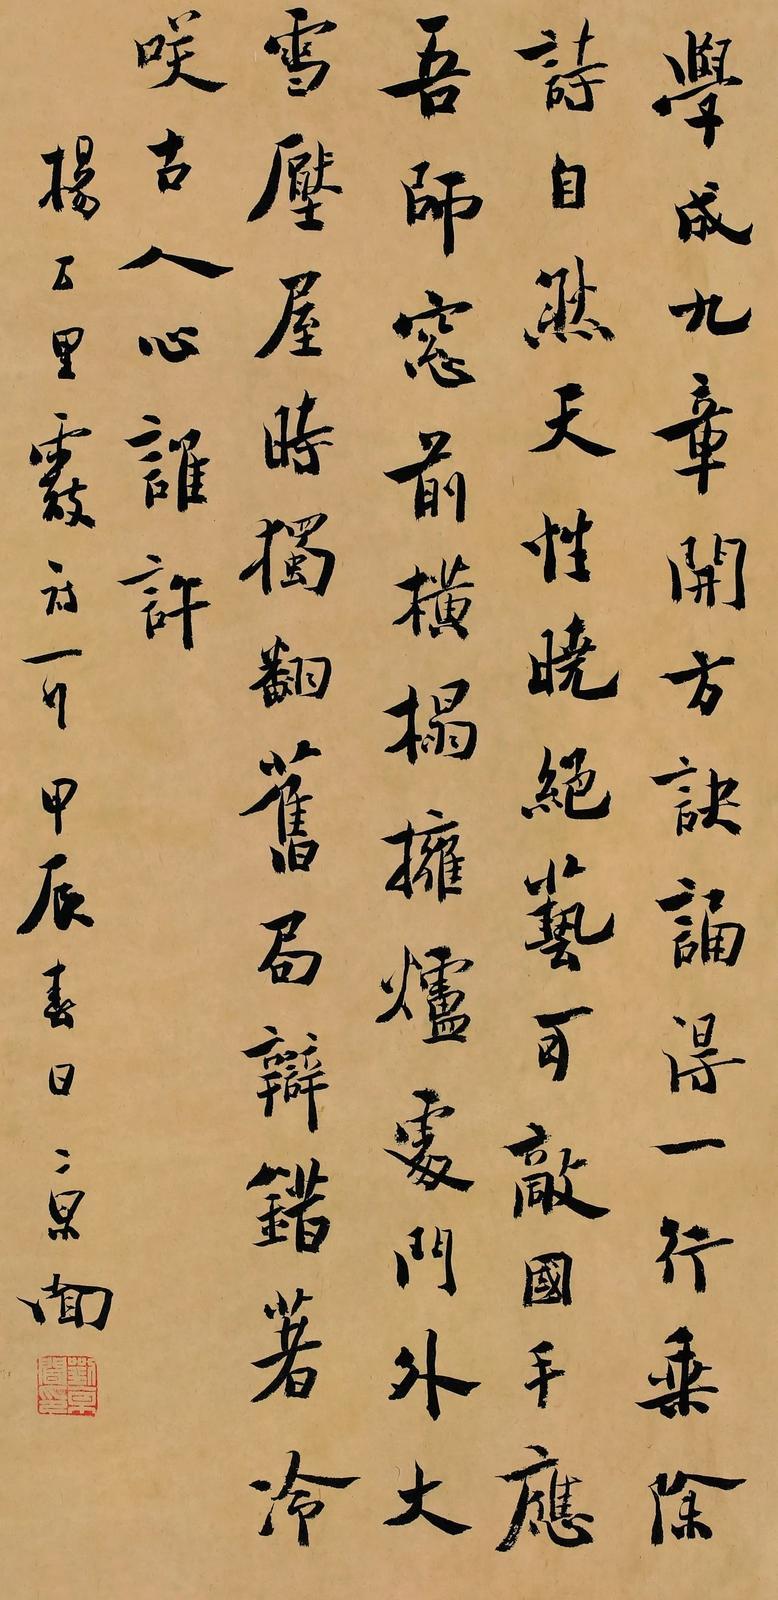 學成九章開方訣誦得一行乘除
詩自然天性曉絕藝可敵國手應
吾師窓前橫榻擁爐處門外大
雪壓屋時獨翻舊局辯錯著冷
咲古人心誰許
楊万里 甲辰春日